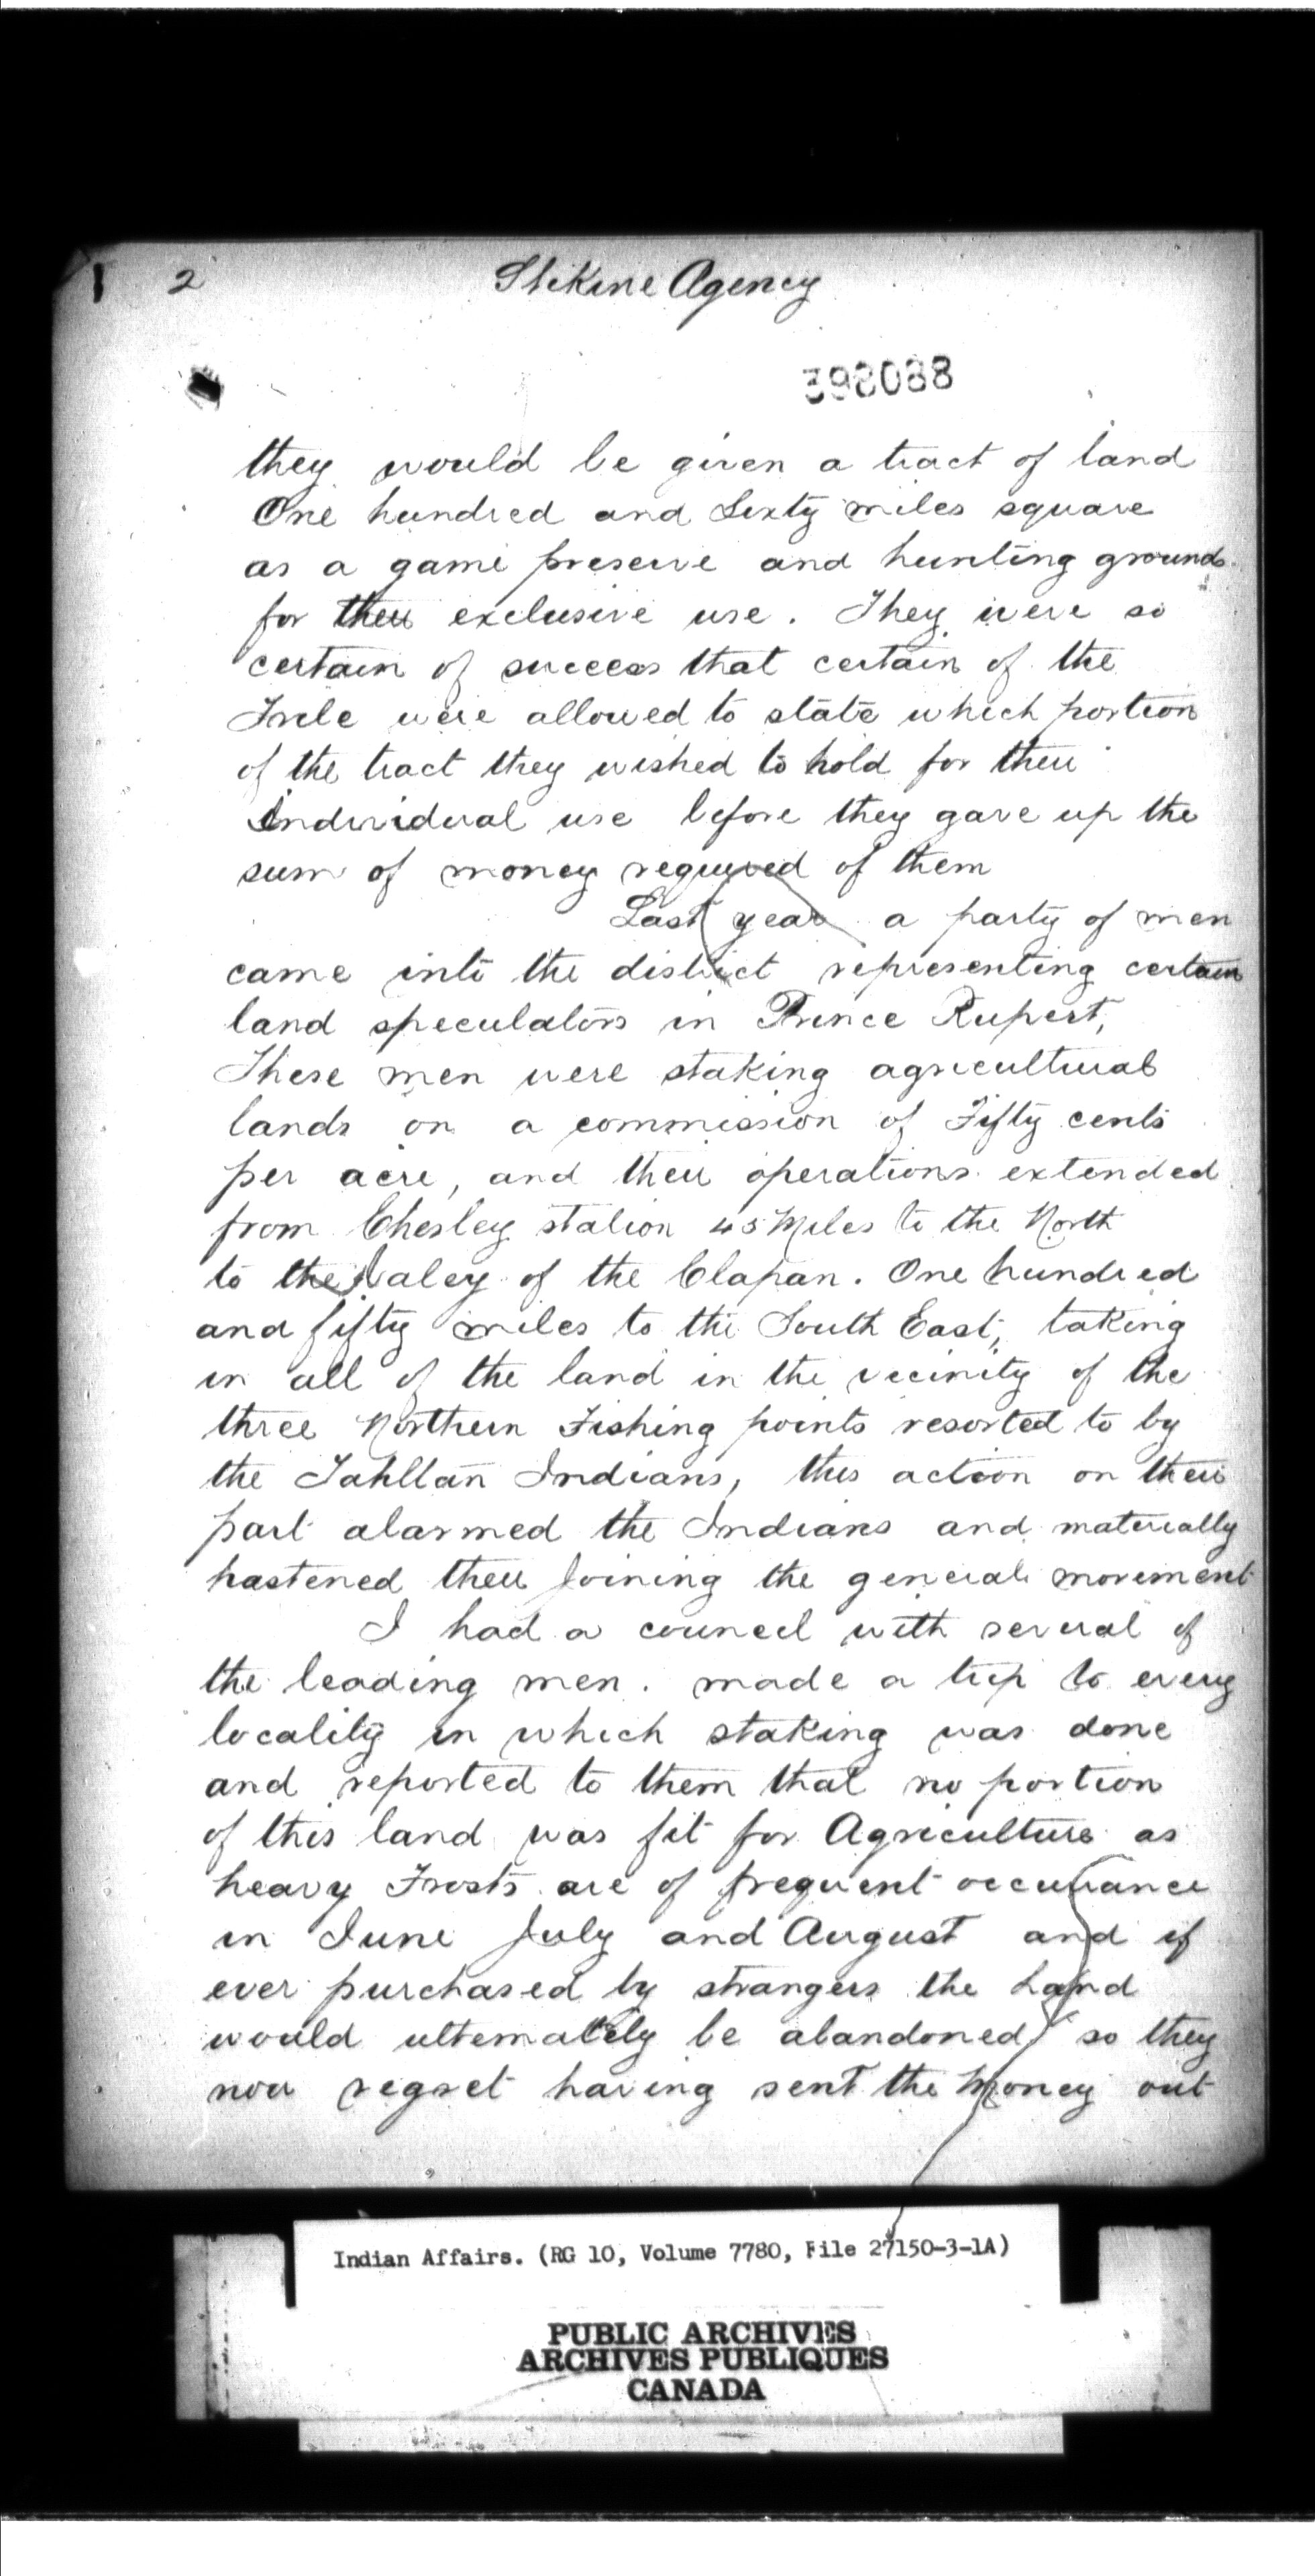 2
Stikine Agency
398088
they would be given a tract of land
One hundred and Sixty miles square
as a game preserve and hunting grounds
for their exclusive use. They were so
certain of success that certain of the
Tribe were allowed to state which portion
of the tract they wished to hold for their
individual use before they gave up the
sum of money required of them
Last year a party of men
came into the district representing certain
land speculators in Prince Rupert,
These men were staking agricultural
lands on a commission of Fifty cents
per acre, and their operations extended
from Chesley station 45 Miles to the North
to the Valey of the Clapan. One hundred
and fifty miles to the South East, taking
in all of the land in the vicinity of the
three Northern Fishing points resorted to by
the Tahltan Indians, this action on their
part alarmed the Indians and materially
hastened their Joining the general movement
I had a council with several of
the leading men. made a trip to every
locality in which staking was done
and reported to them that no portion
of this land was fit for Agriculture as
heavy Frosts are of frequent occurance
in June July and August and if
ever purchased by strangers the Land
would ultemately be abandoned so they
now regret having sent the Money out
Indian Affairs. (RG 10, Volume 7780, File 27150-3-1A)
PUBLIC ARCHIVES
ARCHIVES PUBLIQUES
CANADA